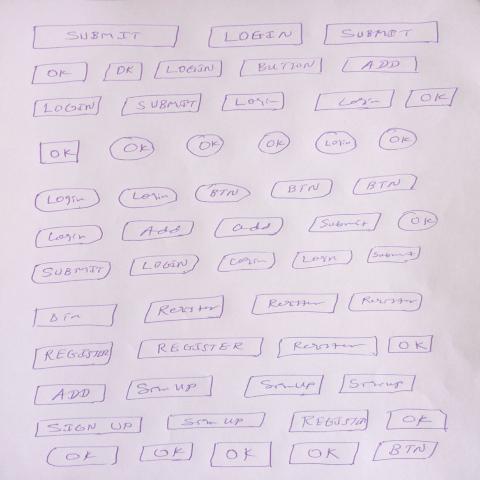 SUBMIT LOGIN SUBMIT
OK OK LOGIN BUTTON ADD
LOGIN SUBMIT Login Login OK
OK OK OK OK Login OK
Login Login BTN BTN BTN
Login Add add Submit OK
SUBMIT LOGIN Login Login Submit
Register Register Register
REGISTER REGISTER Register OK
ADD SignUp SignUp SignUp
SIGN UP Sign Up REGISTER OK
OK OK OK OK BTN